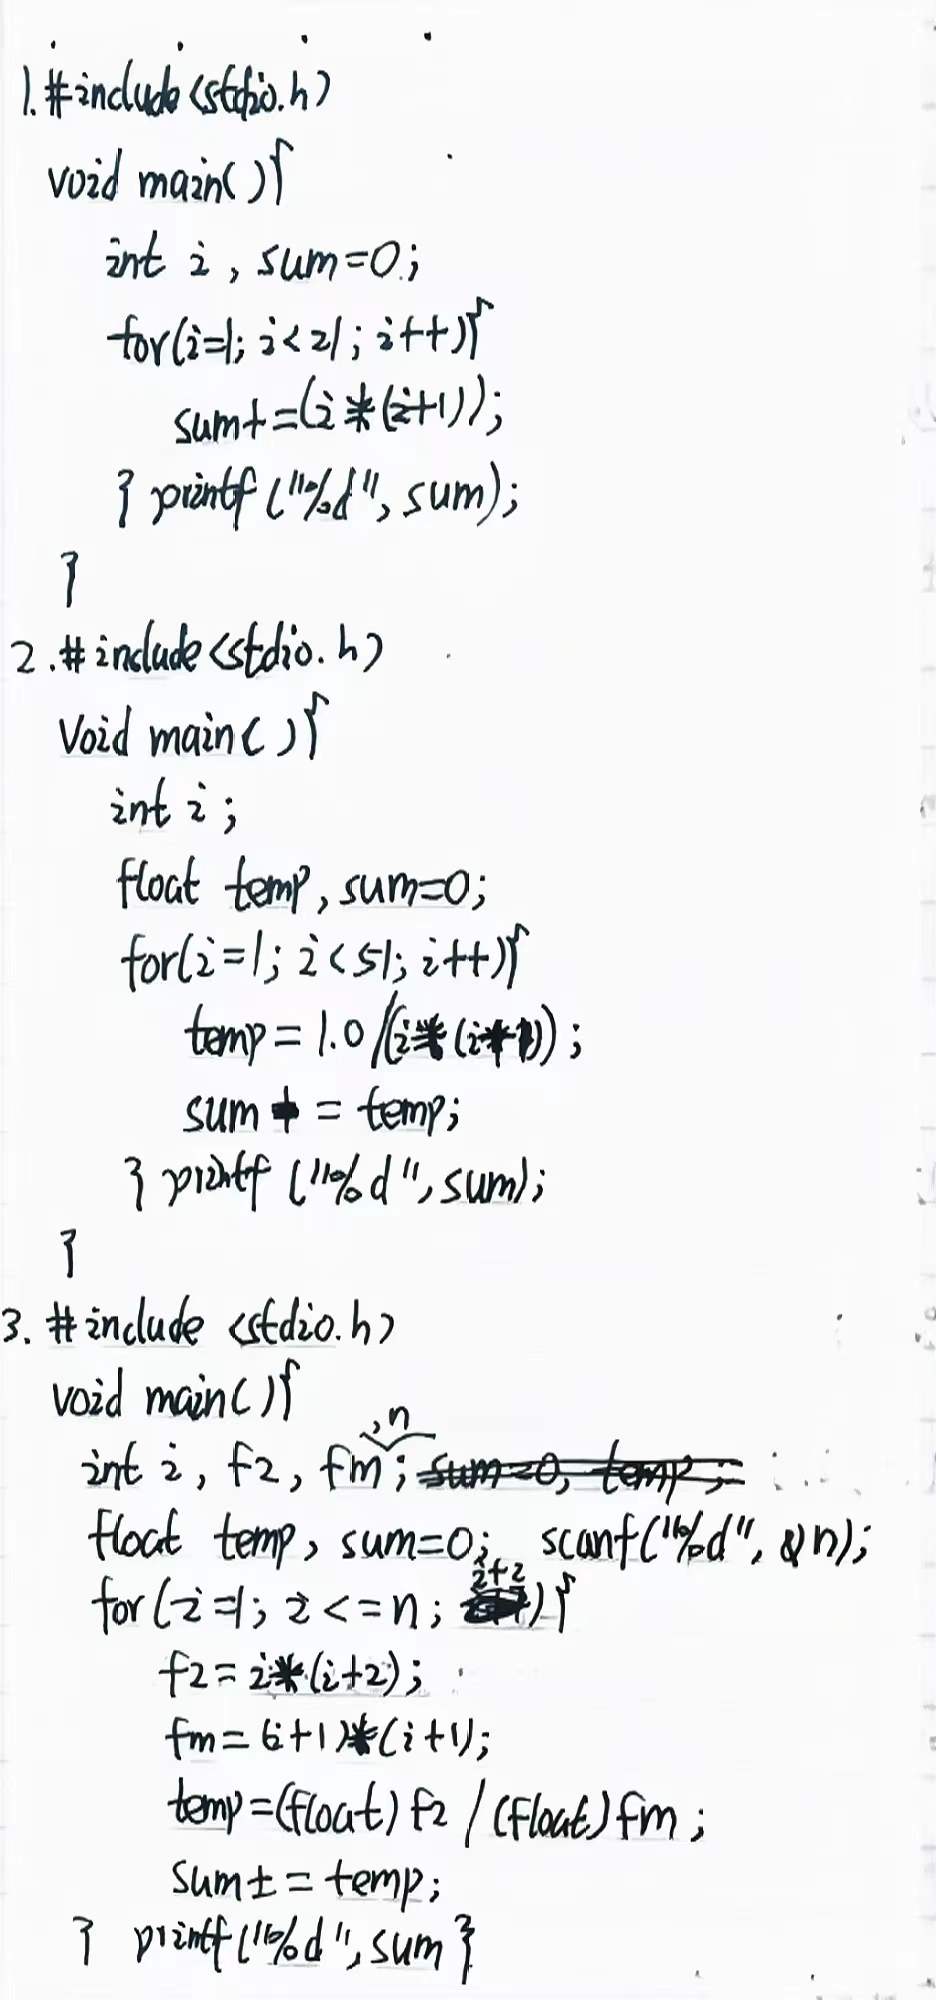 1. #include <stdio.h>
void main(){
int i, sum=0;
for(i=1; i<21; i++){
sum+=(i*(i+1));
} printf("%d", sum);
}
2. #include <stdio.h>
Void main(){
int i;
float temp, sum=0;
for(i=1; i<51; i++){
temp=1.0/(i*(i+1));
sum+=temp;
} printf("%d", sum);
}
3. #include <stdio.h>
void main(){
int i, fz, fm,n; sum=0, temp;
float temp, sum=0; scanf("%d", &n);
for(i=1; i<=n; i+2){
fz=i*(i+2);
fm=(i+1)*(i+1);
temp=(float)fz/(float)fm;
sum±=temp;
} printf("%d", sum}